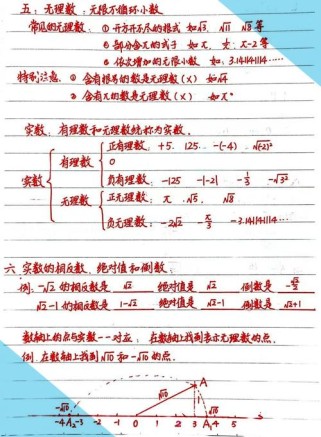 五：无理数：无限不循环小数
常见的无理数：① 开方开不尽的根式 如√3, √11 √8等
② 部分含π的式子 如π, π-2等
③ 依次增加的无限小数 如: 3.141141114……
特别注意：① 含有根号的数是无理数(×) 如√4
② 含有π的数是无理数(×) 如π°
实数：有理数和无理数统称为实数。
实数 有理数 正有理数: +5. 125. -(-4) √(-2)²
0
负有理数: -125 -|-2| -1/3 -√3²
无理数 正无理数: π .√5. √8
负无理数: -2√2 -π/3 -3.141141114……
六 实数的相反数, 绝对值和倒数:
例: -√2 的相反数是 √2 绝对值是 √2 倒数是 -√2/2
√2-1 的相反数是 1-√2 绝对值是 √2-1 倒数是 √2+1
数轴上的点与实数一一对应: 在数轴上找到表示无理数的点.
例. 在数轴上找到√10 和 -√10 的点.
√10 A 1
-√10 √10
-4 A₂ -3 -2 -1 0 1 2 3 A₁ 4 5